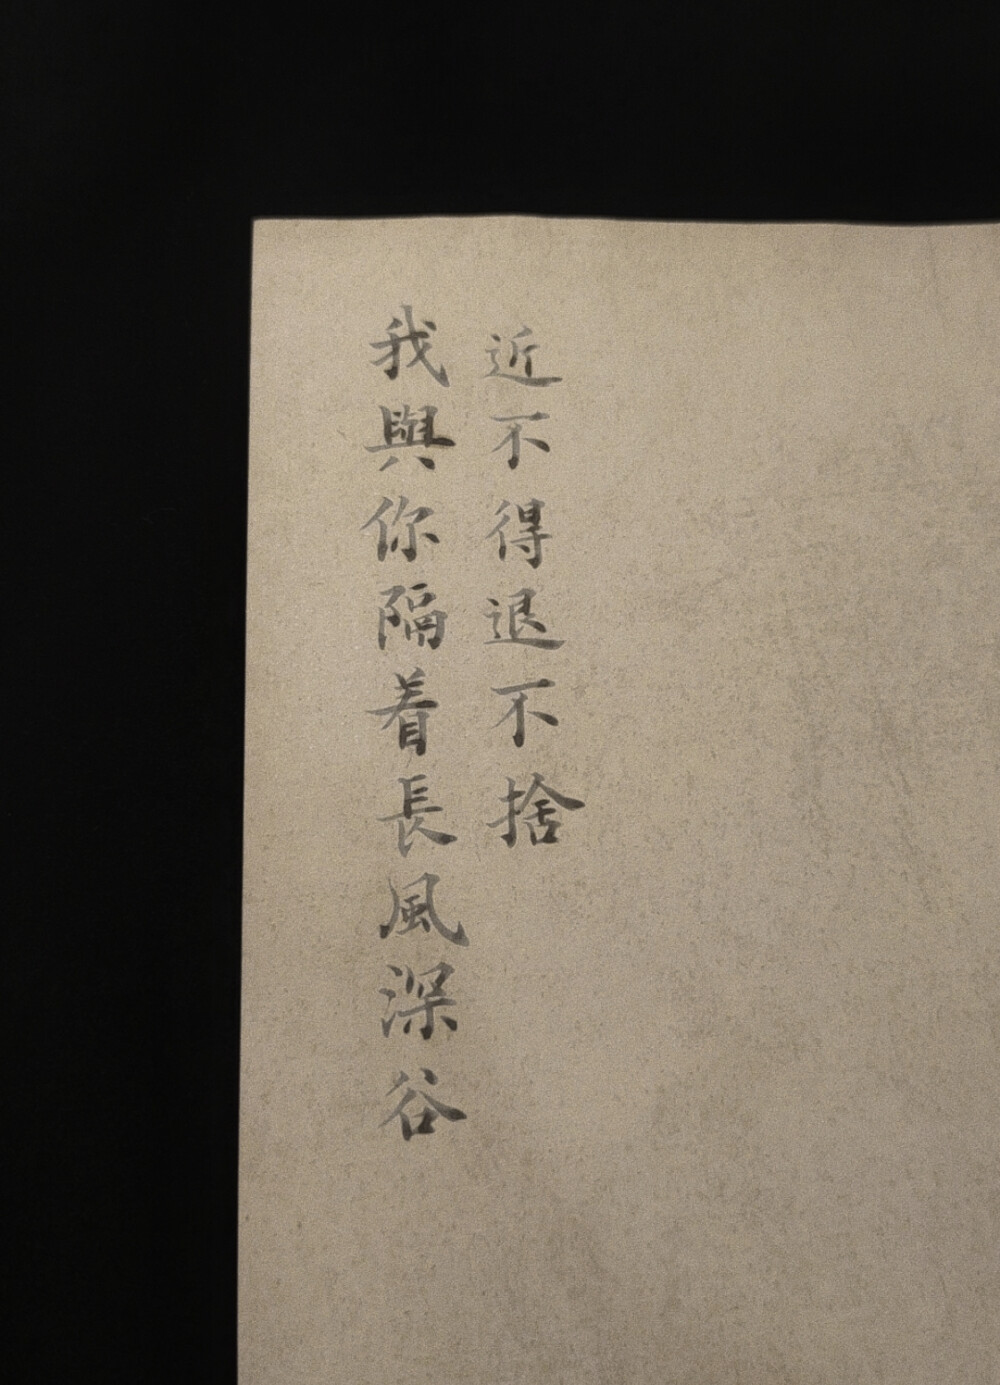 近不得退不捨
我與你隔着長風深谷